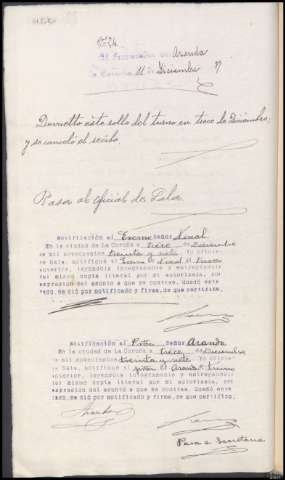 Aranda
La Coruña 11 de Diciembre 37
Devuelto este rollo del turno en trece de Diciembre,
y se canceló el recibo
Pasa al oficial de Sala
Notificación al Excmo Señor Fiscal
En la ciudad de La Coruña a trece de Diciembre
de mil novecientos treinta y siete Yo Oficial
de Sala, notifiqué al Excmo S Fiscal el
anterior, leyéndole íntegramente y entregándole
del mismo copia literal por mí autorizada, con
expresión del asunto a que se contrae. Quedó ente
rado, se dió por notificado y firma, de que certifico.
Notificación al Señor Aranda
En la ciudad de La Coruña a trece de Diciembre
de mil novecientos treinta y siete Yo Oficial
de Sala, notifiqué al Aranda
anterior, leyéndole íntegramente y entregándole
del mismo copia literal por mí autorizada, con
expresión del asunto a que se contrae. Quedó ente
rado, se dió por notificado y firma, de que certifico.
Pasa a Secretaría